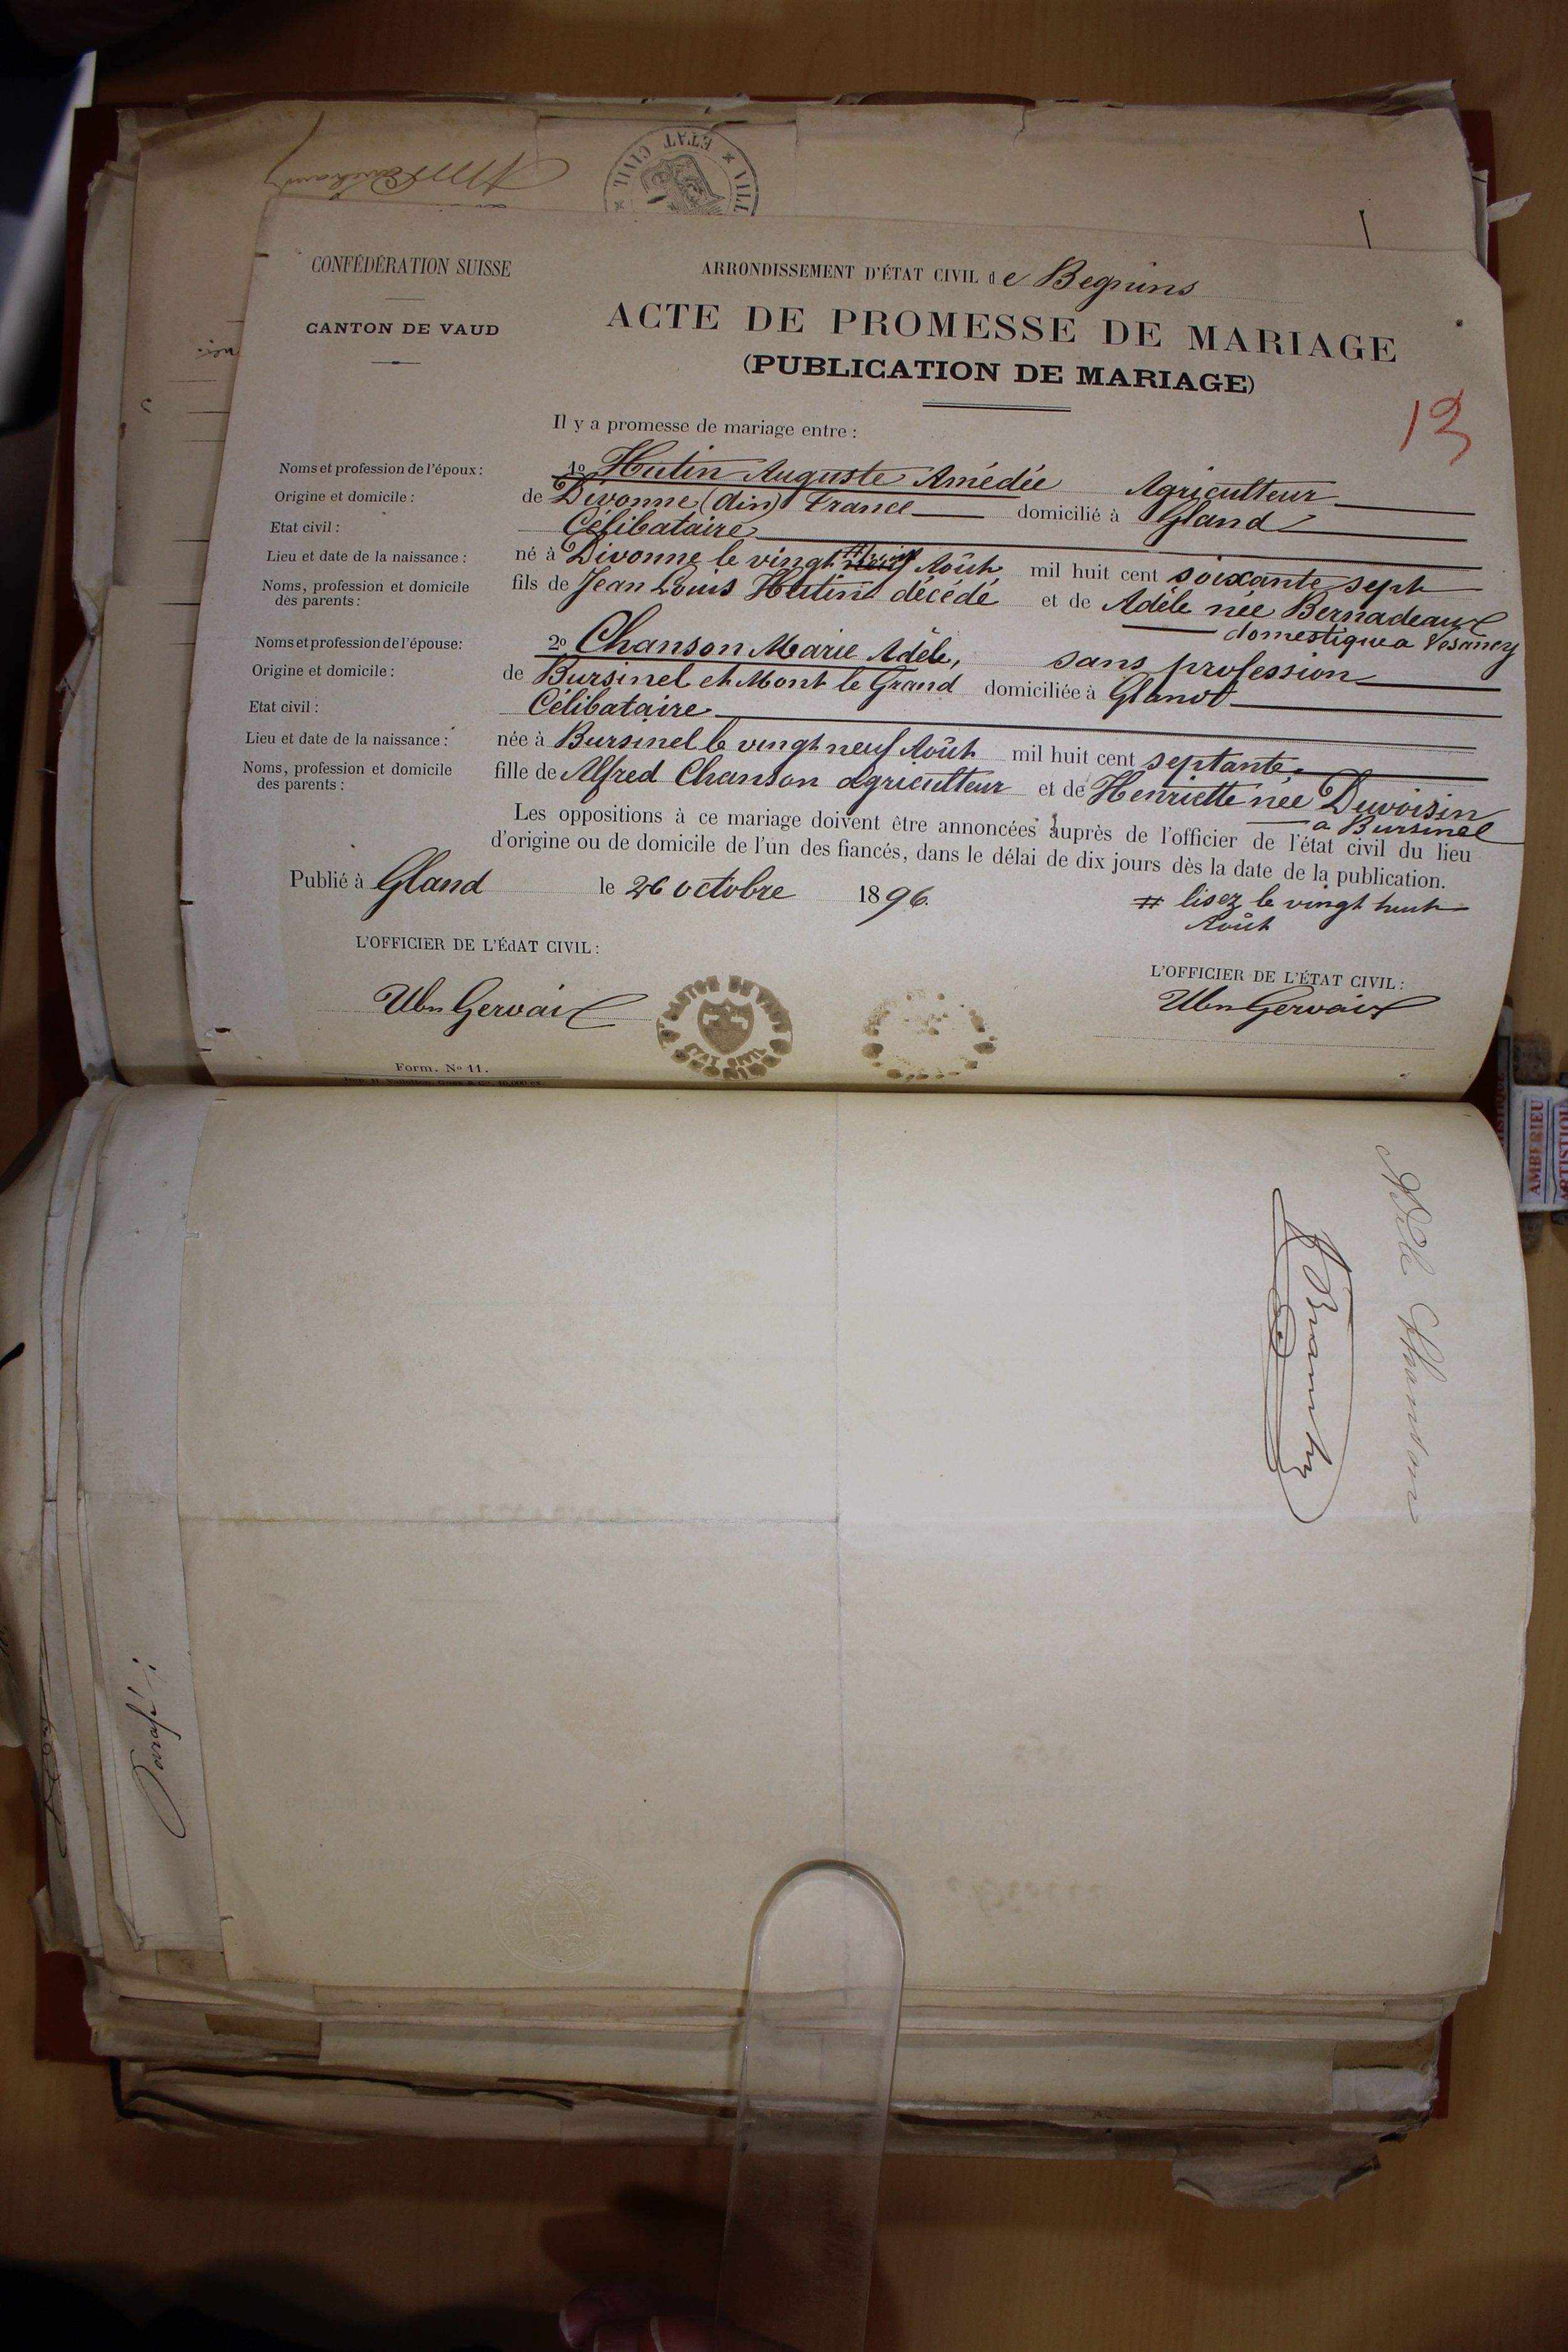 CONFÉDÉRATION SUISSE
CANTON DE VAUD
ARRONDISSEMENT D'ÉTAT CIVIL de Begnins
ACTE DE PROMESSE DE MARIAGE
(PUBLICATION DE MARIAGE)
13
Il y a promesse de mariage entre :
Noms et profession de l'époux : 1º Hutin Auguste Amédée Agriculteur
Origine et domicile : de Divonne (Ain) France domicilié à Gland
Etat civil : Célibataire
Lieu et date de la naissance : né à Divonne le vingt neuf # Août mil huit cent soixante sept
Noms, profession et domicile des parents : fils de Jean Louis Hutin décédé et de Adèle née Bernadeaux
domestique a Vesancy
Noms et profession de l'épouse : 2º Chanson Marie Adèle, sans profession
Origine et domicile : de Bursinel et Mont le Grand domiciliée à Gland
Etat civil : Célibataire
Lieu et date de la naissance : née à Bursinel le vingt neuf Août mil huit cent septante.
Noms, profession et domicile des parents : fille de Alfred Chanson agriculteur et de Henriette née Duvoisin
a Bursinel
Les oppositions à ce mariage doivent être annoncées auprès de l'officier de l'état civil du lieu
d'origine ou de domicile de l'un des fiancés, dans le délai de dix jours dès la date de la publication.
Publié à Gland le 26 octobre 1896.
# lisez le vingt huit
Août
L'OFFICIER DE L'ÉdAT CIVIL :
L'OFFICIER DE L'ÉTAT CIVIL :
Ubn Gervaix
Ubn Gervaix
CANTON DE VAUD
ETAT CIVIL
Form. Nº 11.
ETAT CIVIL
AMBERIEU